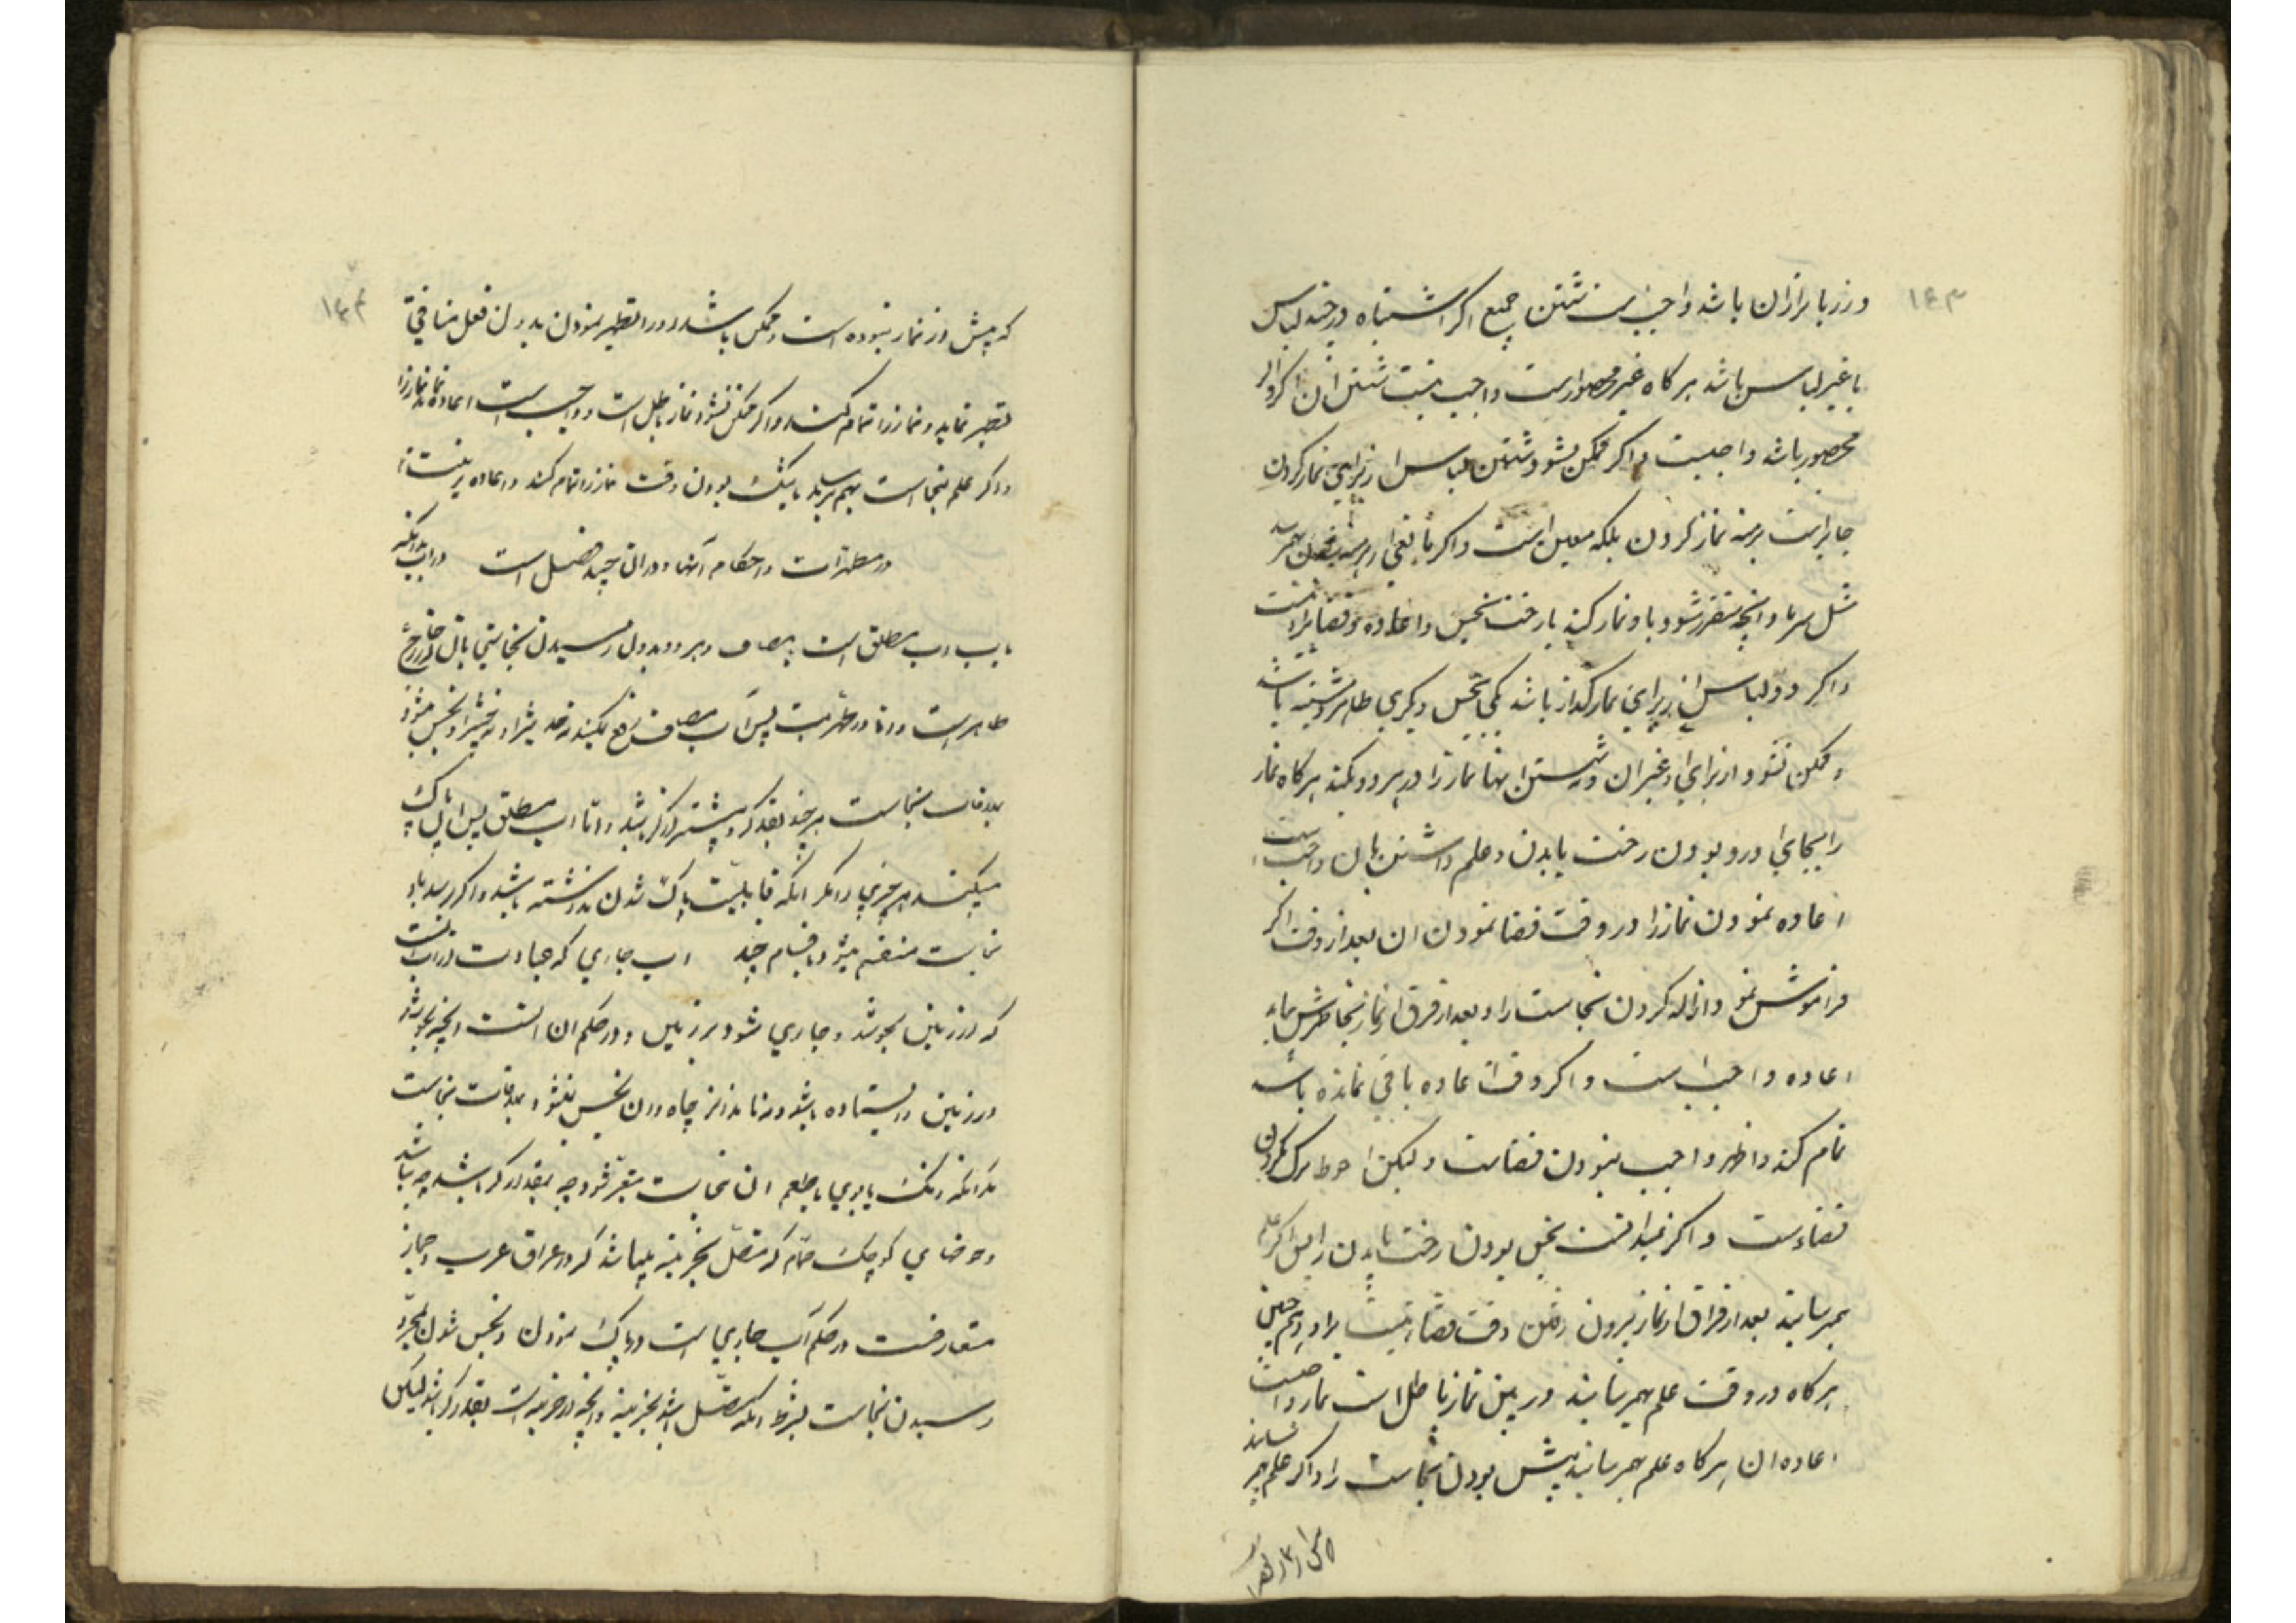 ۱۴۳
و زربا برازان باشد واجب است شستن جمیع اکر اشتباه در چند لباس
با غیر لباس باشد هرکاه غیر محصور است واجب نیست شستن ان و اکر
محصور باشد واجبست و اکر ممکن نشود شستن لباس از برای نماز کردن
جایز است برهنه نماز کردن بلکه معین است و اکر مانعی از برهنه شدن بهم رسد
مثل سرما و انچه متضرر شود با و نماز کند با رخت نجس و اعاده و قضا بر او نیست
و اکر دو لباس از برای نماز کذار باشد یکی نجس و یکری طاهر و مشتبه باشد
و ممکن نشود از برای او غیر ان و شستن انها نماز را در هر دو بکند هرکاه نماز
را بجای اورد بودن رخت یا بدن و علم داشتن بان واجب است
اعاده نمودن نماز را در وقت و قضا نمودن ان بعد از وقت و اکر
فراموش نمود ازاله کردن نجاست را و بعد از فراق از نماز بخاطرش بیاید
اعاده واجب است و اکر وقت اعاده باقی نمانده باشد
تمام کند و اظهر واجب نبودن قضاست و لیکن احوط ترک نکردن
قضاءست و اکر نمیدانست نجس بودن رخت یا بدن را پس اکر علم
بهمرسانید بعد از فراق از نماز بیرون رفتن وقت قضا نیست بر او و همچنین
هرکاه در وقت علم بهمرسانید در بین نماز باطل است نماز و واجبست
اعاده ان هرکاه علم بهمرسانید پیش بودن نجاست را و اکر علم بهم نرساند
۱۴۴
که پیش از نماز نبوده است و ممکن باشد او را تطهیر نمودن بدون فعل منافی
تطهیر نماید و نماز را تمام کند و اکر ممکن نشود نماز باطل است و واجب است اعاده نماز را
و اکر علم بنجاست بهم رسید با تنک بودن وقت نماز را تمام کند و اعاده بر او نیست
در مطهرات و احکام آنها و دران چند فصل است در اب بدانکه
اب مطلق است یا مضاف و هر دو بدون رسیدن نجاستی بان از خارج
طاهر است و اما در مطهریت پس آب مضاف رفع نمیکند نه حدیث را و نه خبث را و نجس میشود
بملاقات نجاست هر چند بقدر کر و بیشتر از کر باشد و اما اب مطلق پس ان پاک
میکند هر چیزی را مکر انکه قابلیت پاک شدن نداشته باشد و اکر رسد باو
نجاست منقسم میشود باقسام چند اب جاری که عبارت از آنست
که از زمین بجوشد و جاری شود بر زمین و در حکم ان است انچه بجوشد
در زمین و ایستاده باشد و مانند اب چاه و ان نجس نمیشود بملاقات نجاست
مکر انکه رنک یا بوی یا طعم ان نجاست متغیر شود چه بقدر کر باشد چه نباشد
و حوضهای کوچک حمام که متصل بخزینه میباشد که در عراق عرب و حجاز
متعارفست در حکم آب جاری است در پاک نمودن و نجس شدن بمجرد
رسیدن نجاست بشرط انکه متصل باشد بخزینه و انچه در خزینه است بقدر کر باشد لیکن